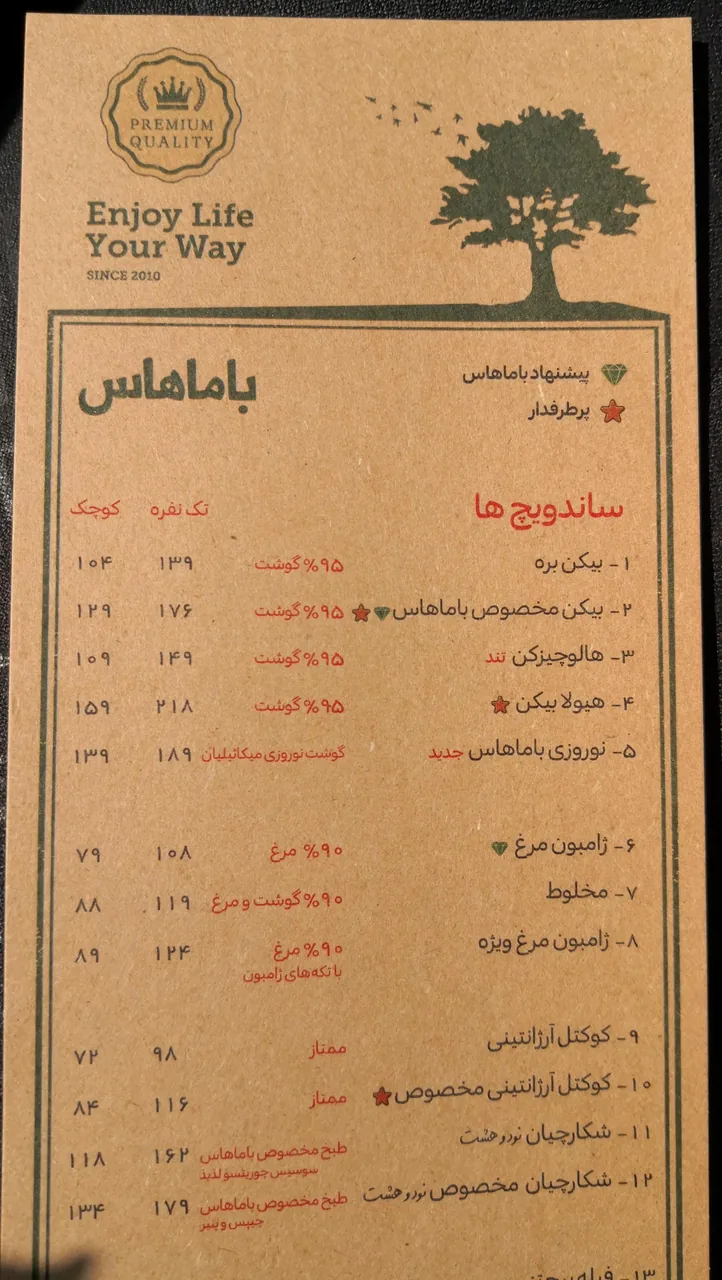 PREMIUM
QUALITY
Enjoy Life
Your Way
SINCE 2010
پیشنهاد باماهاس
پرطرفدار
باماهاس
ساندویچ ها تک نفره کوچک
۱- بیکن بره ۹۵% گوشت ۱۳۹ ۱۰۴
۲- بیکن مخصوص باماهاس ۹۵% گوشت ۱۷۶ ۱۲۹
۳- هالوچیزکن تند ۹۵% گوشت ۱۴۹ ۱۰۹
۴- هیولا بیکن ۹۵% گوشت ۲۱۸ ۱۵۹
۵- نوروزی باماهاس جدید گوشت نوروزی میکائیلیان ۱۸۹ ۱۳۹
۶- ژامبون مرغ ۹۰% مرغ ۱۰۸ ۷۹
۷- مخلوط ۹۰% گوشت و مرغ ۱۱۹ ۸۸
۸- ژامبون مرغ ویژه ۹۰% مرغ ۱۲۴ ۸۹
با تکه‌های ژامبون
۹- کوکتل آرژانتینی ممتاز ۹۸ ۷۲
۱۰- کوکتل آرژانتینی مخصوص ممتاز ۱۱۶ ۸۴
۱۱- شکارچیان نود و هشت طبخ مخصوص باماهاس ۱۶۲ ۱۱۸
سوسیس چوریتسو لذیذ
۱۲- شکارچیان مخصوص نود و هشت طبخ مخصوص باماهاس ۱۷۹ ۱۳۴
چیپس و پنیر
۱۳- فیله